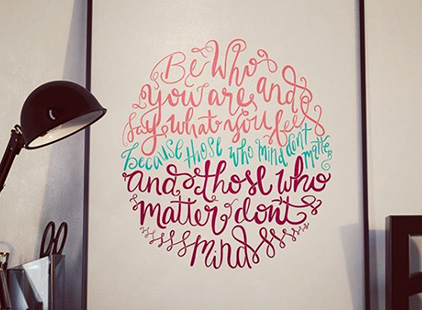 Be Who
you are and
Say what you feel
because those who mind don't matter
and those who
matter don't
mind